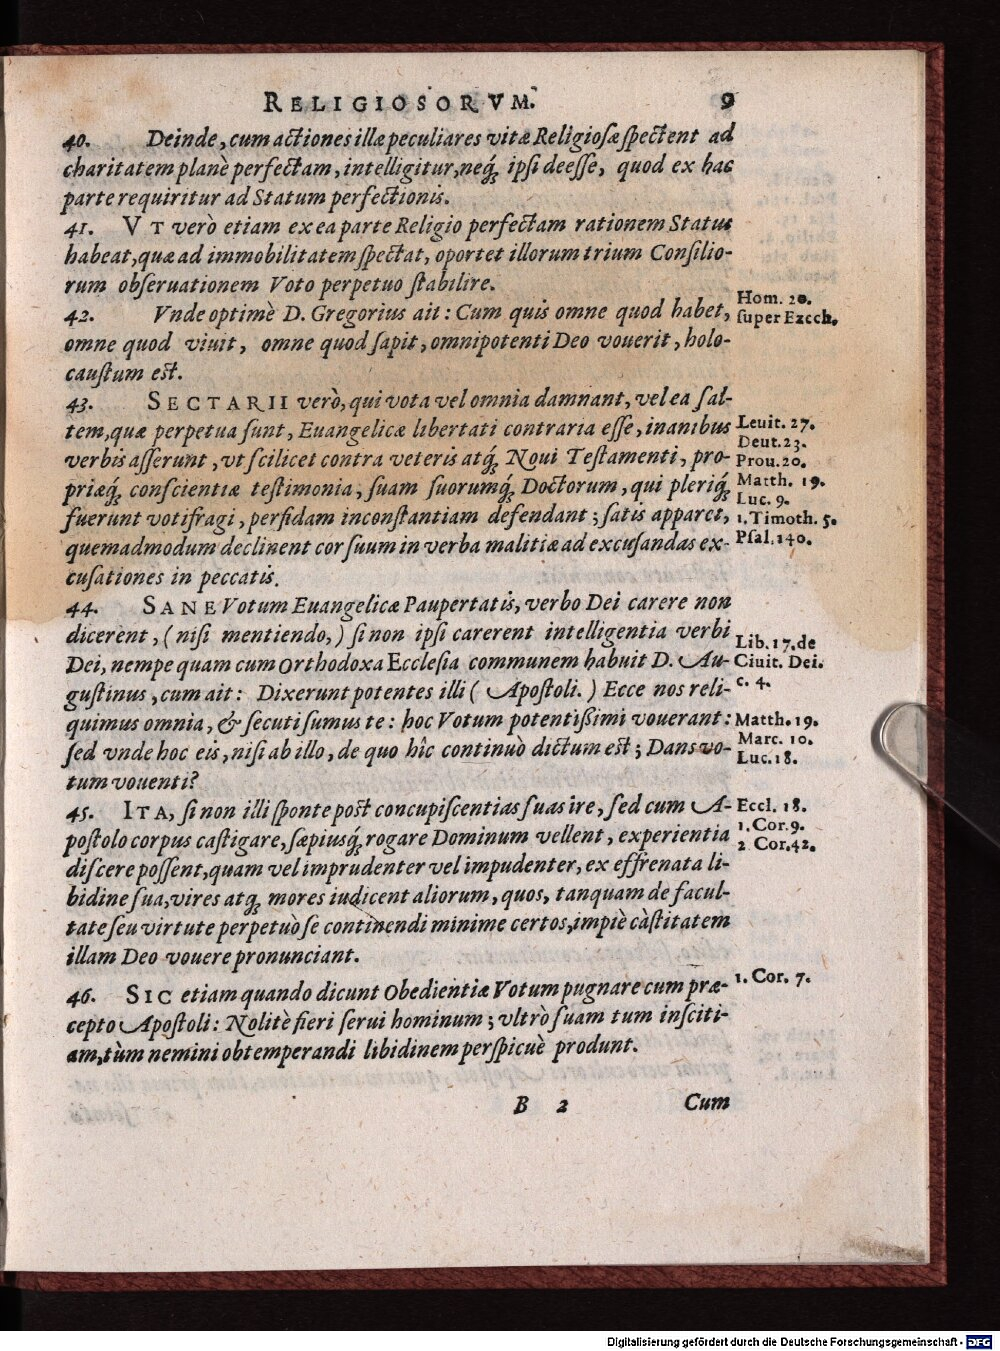 RELIGIOSORVM. 9
40. Deinde, cum actiones illæ peculiares vitæ Religiosæ spectent ad
charitatem planè perfectam, intelligitur, neq́; ipsi deesse, quod ex hac
parte requiritur ad Statum perfectionis.
41. VT verò etiam ex ea parte Religio perfectam rationem Status
habeat, quæ ad immobilitatem spectat, oportet illorum trium Consilio-
rum obseruationem Voto perpetuo stabilire.
42. Vnde optimè D. Gregorius ait: Cum quis omne quod habet,
omne quod viuit, omne quod sapit, omnipotenti Deo vouerit, holo-
caustum est.
Hom. 20.
super Ezech.
43. SECTARII verò, qui vota vel omnia damnant, vel ea sal-
tem, quæ perpetua sunt, Euangelicæ libertati contraria esse, inanibus
verbis asserunt, vt scilicet contra veteris atq́; Noui Testamenti, pro-
priæq́; conscientiæ testimonia, suam suorumq́; Doctorum, qui pleriq́;
fuerunt votifragi, perfidam inconstantiam defendant; satis apparet,
quemadmodum declinent cor suum in verba malitiæ ad excusandas ex-
cusationes in peccatis.
Leuit. 27.
Deut. 23.
Prou. 20.
Matth. 19.
Luc. 9.
1. Timoth. 5.
Psal. 140.
44. SANE Votum Euangelicæ Paupertatis, verbo Dei carere non
dicerent, (nisi mentiendo,) si non ipsi carerent intelligentia verbi
Dei, nempe quam cum Orthodoxa Ecclesia communem habuit D. Au-
gustinus, cum ait: Dixerunt potentes illi (Apostoli.) Ecce nos reli-
quimus omnia, & secuti sumus te: hoc Votum potentißimi vouerant:
sed vnde hoc eis, nisi ab illo, de quo hîc continuò dictum est; Dans vo-
tum vouenti?
Lib. 17. de
Ciuit. Dei.
c. 4.
Matth. 19.
Marc. 10.
Luc. 18.
45. ITA, si non illi sponte post concupiscentias suas ire, sed cum A-
postolo corpus castigare, sæpiusq́; rogare Dominum vellent, experientia
discere possent, quam vel imprudenter vel impudenter, ex effrenata li-
bidine sua, vires atq́; mores iudicent aliorum, quos, tanquam de facul-
tate seu virtute perpetuò se continendi minime certos, impiè càstitatem
illam Deo vouere pronunciant.
Eccl. 18.
1. Cor. 9.
2 Cor. 42.
46. SIC etiam quando dicunt Obedientiæ Votum pugnare cum præ-
cepto Apostoli: Nolitè fieri serui hominum; vltrò suam tum insciti-
am, tùm nemini obtemperandi libidinem perspicuè produnt.
1. Cor. 7.
B 2 Cum
Digitalisierung gefördert durch die Deutsche Forschungsgemeinschaft - DFG